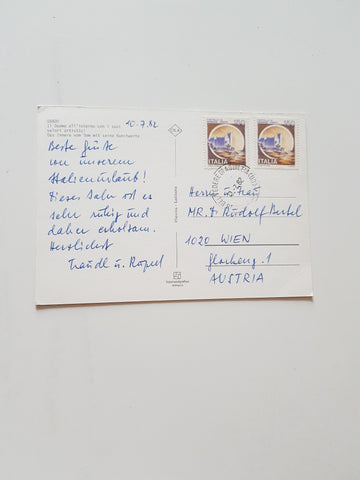 GRADO
Il Duomo all'interno con i suoi
valori artistici
Das Innere vom Dom mit seine Kunstwerte
10.7.82
Beste Grüße
von unserem
Italienurlaub!
Dieses Jahr ist es
sehr ruhig und
daher erholsam.
Herzlichst
Traudl u.
ITALIA
ITALIA
Herrn u. Frau
MR. Rudolf
1020 WIEN
1
AUSTRIA